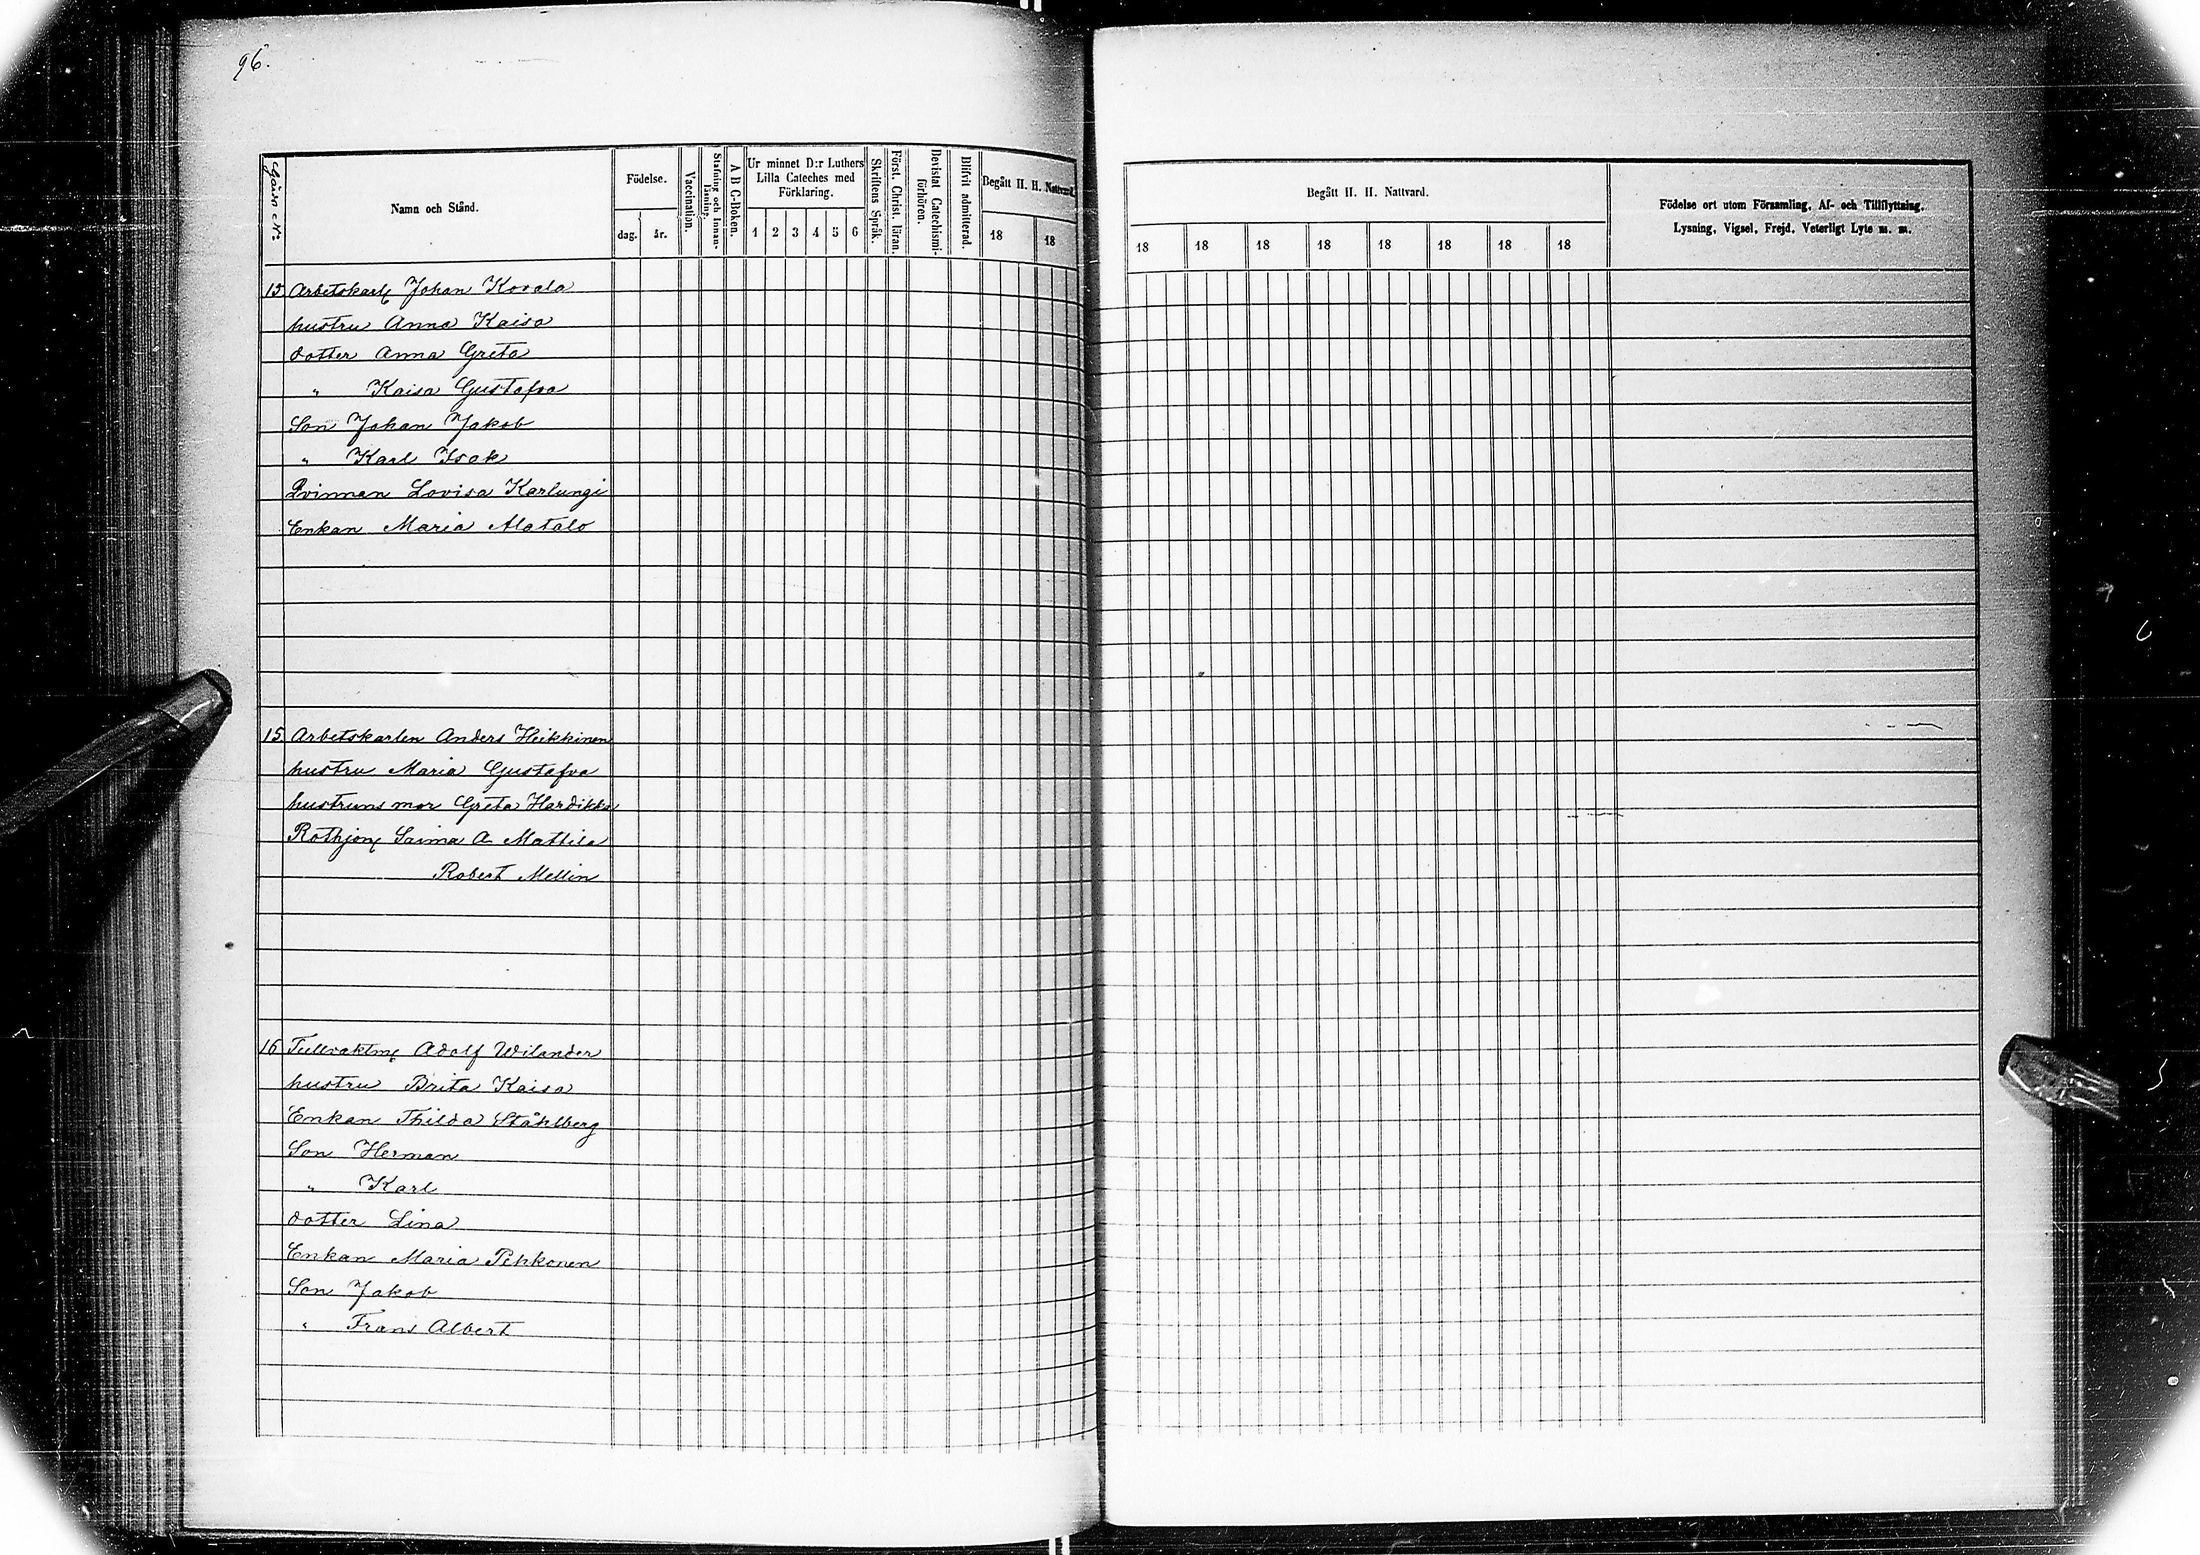 96.
Gårds No
Namn och Stånd.
Födelse.
dag. år.
Vaccination.
Stafning och Innanläsning.
A B C-Boken.
Ur minnet D:r Luthers
Lilla Cateches med
Förklaring.
1 2 3 4 5 6
Skriftens Språk.
Först. Christ. läran.
Bevistat Catechismiförhören.
Blifvit admitterad.
Begått H. H. Nattvard.
18 18
Begått H. H. Nattvard.
18 18 18 18 18 18 18 18
Födelse ort utom Församling, Af- och Tillflyttning,
Lysning, Vigsel, Frejd, Veterligt Lyte m. m.
15 Arbetskarl Johan Kovala
hustru Anna Kaisa
dotter Anna Greta
" Kaisa Gustafva
Son Johan Jakob
" Karl Isak
Qvinnan Lovisa Karlungi
Enkan Maria Alatalo
15 Arbetskarlen Anders Heikkinen
hustru Maria Gustafva
hustruns mor Greta Hardikka
Rothjon Saima A Mattila
Robert Mellin
16 Tullvaktm Adolf Wilander
hustru Brita Kaisa
Enkan Thilda Ståhlberg
Son Herman
" Karl
dotter Lina
Enkan Maria Pehkonen
Son Jakob
" Frans Albert